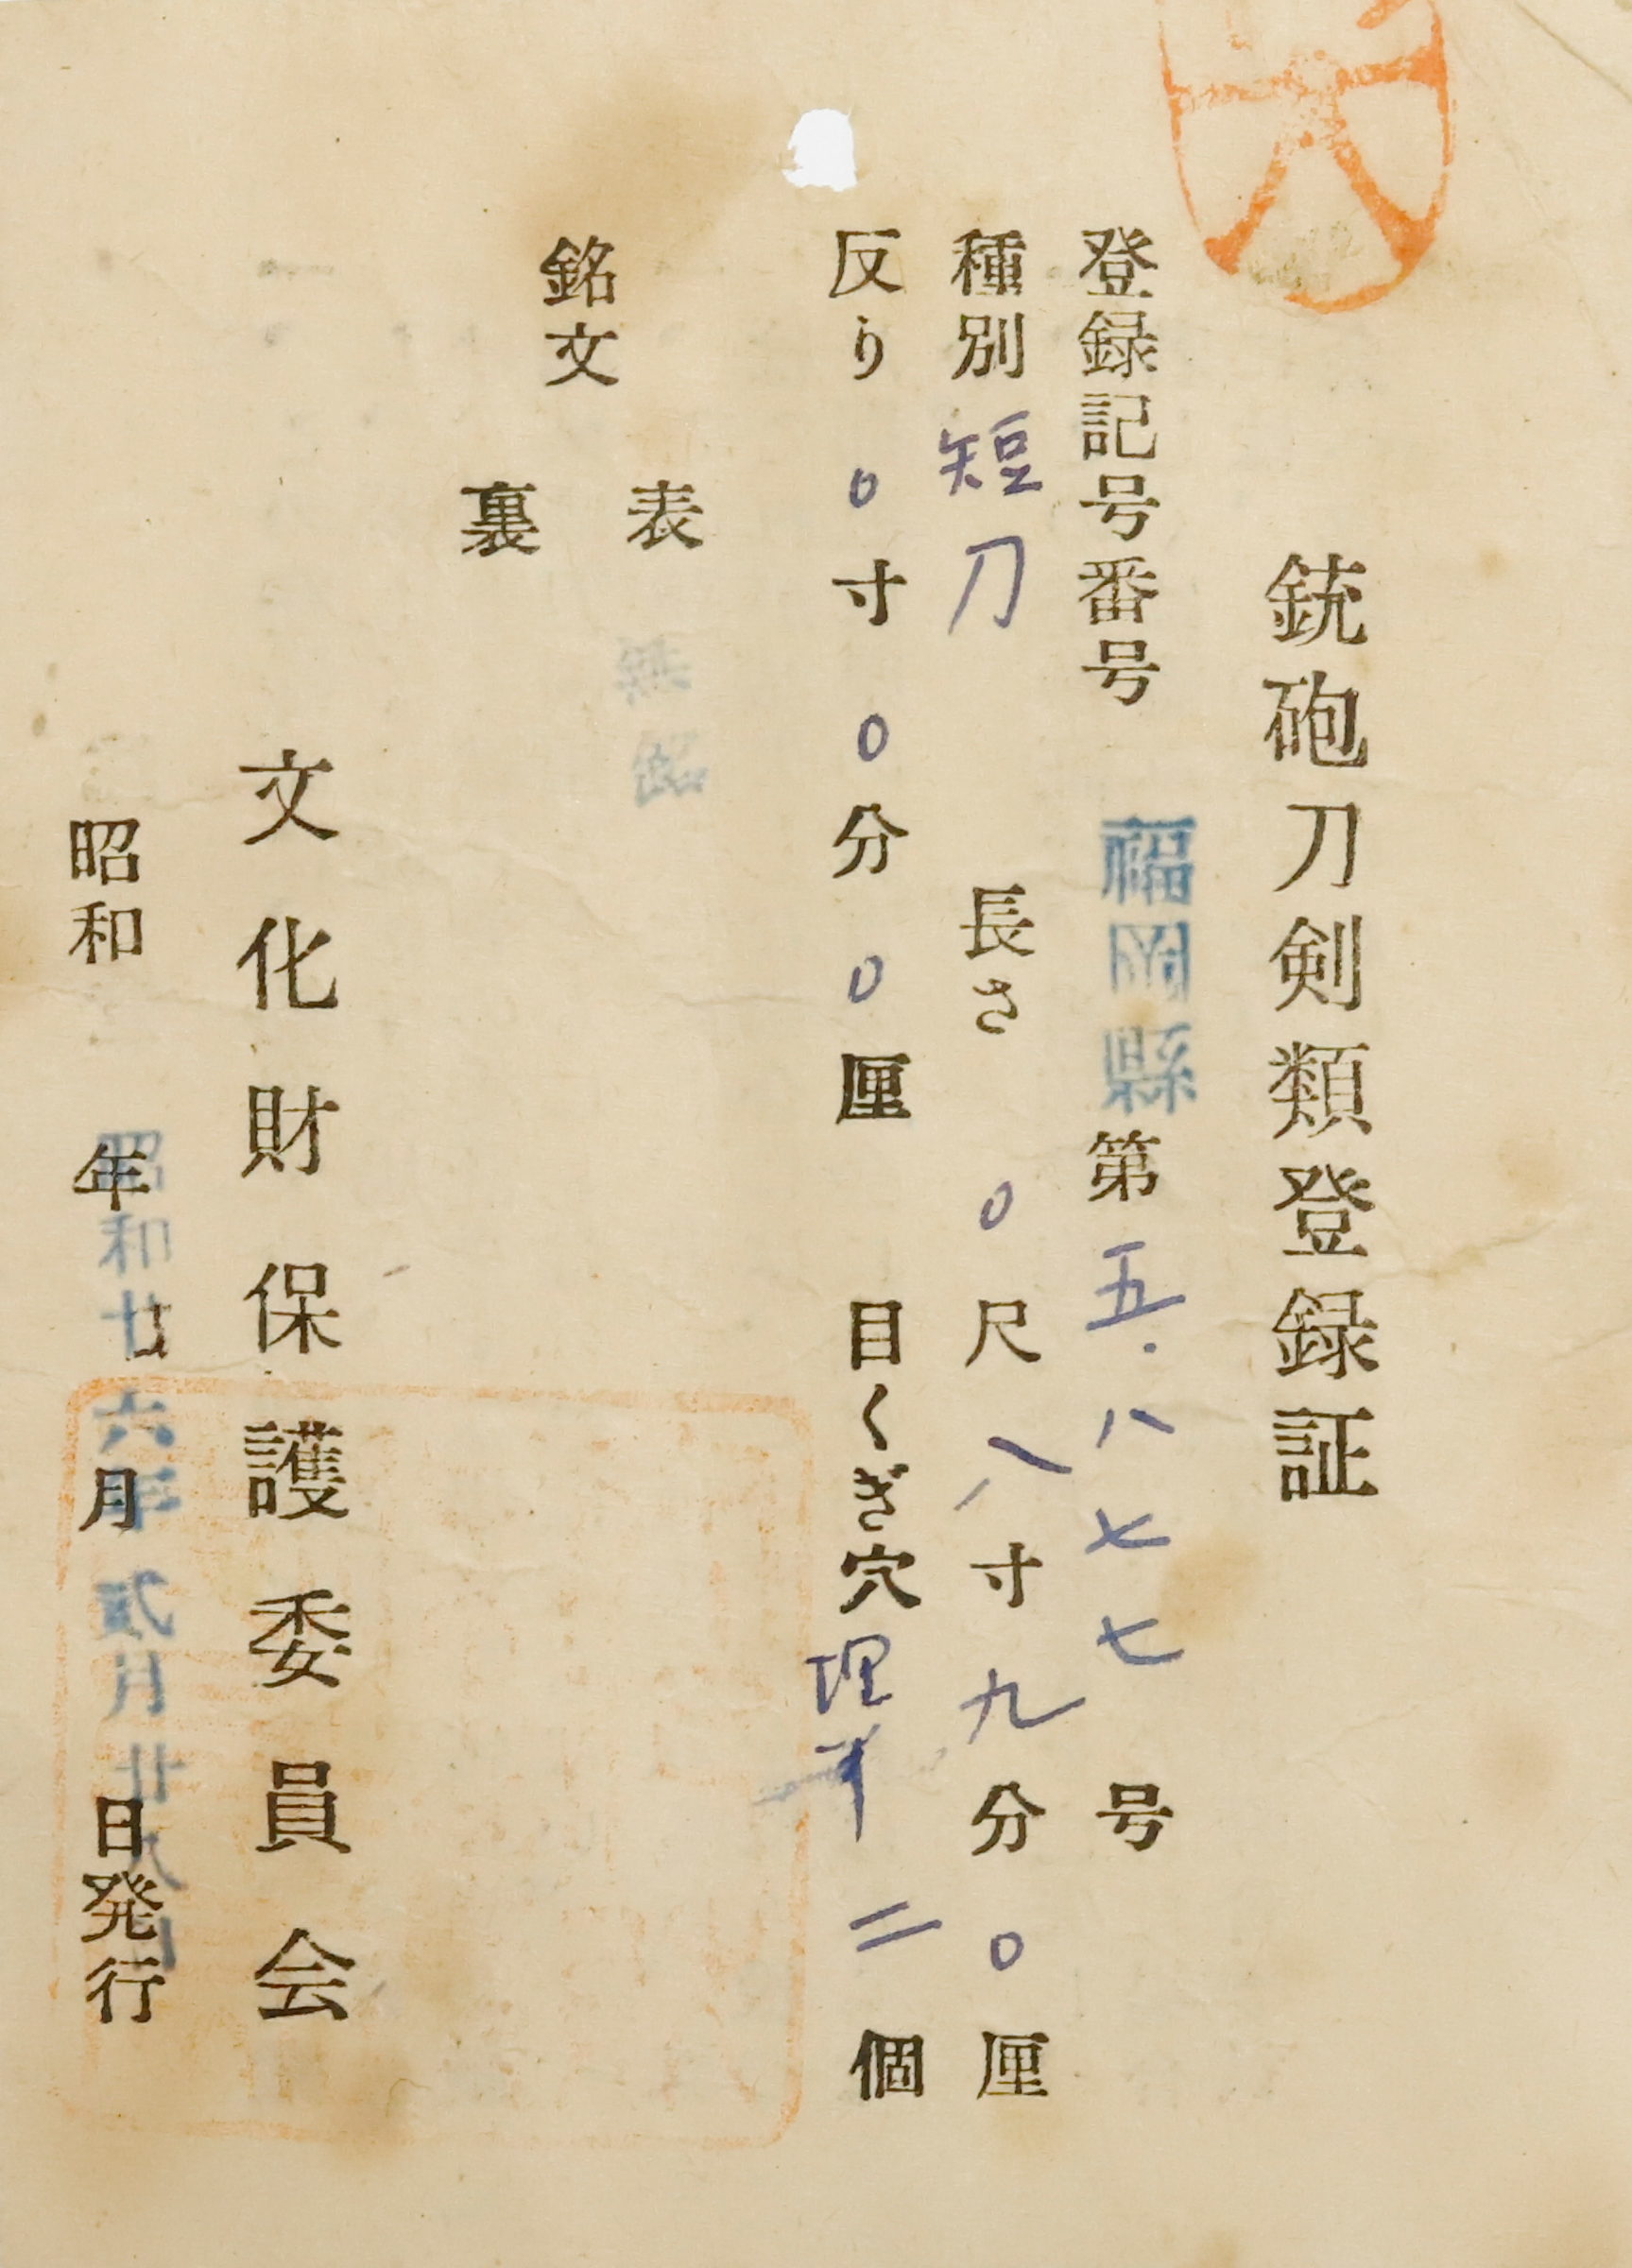 銃砲刀剣類登録証
登録記号番号 福岡縣第五.八七七号
種別 短刀 長さ 〇尺八寸九分〇厘
反り 〇寸〇分〇厘 目くぎ穴 埋 二個
表 無銘
銘文
裏
文化財保護委員会
昭和 年 月 日発行
昭和廿六年貳月廿八日